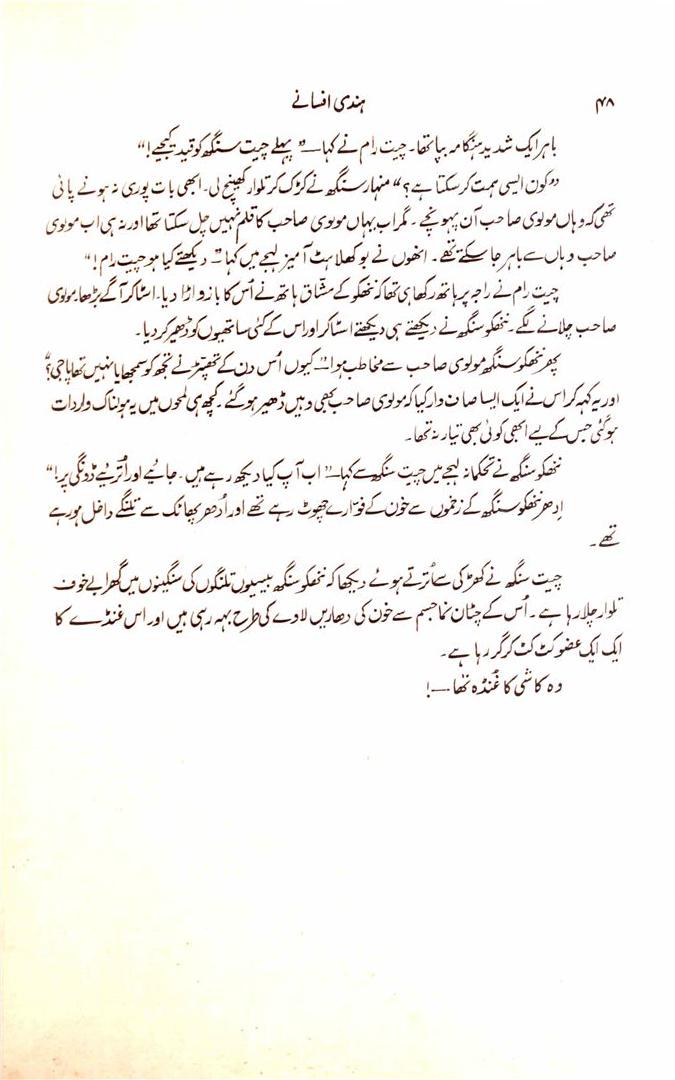 ۴۸ ہندی افسانے
باہر ایک شدید ہنگامہ بپا تھا۔ چیت رام نے کہا—” پہلے چیت سنگھ کو قید کیجیے!“
”کون ایسی ہمت کر سکتا ہے؟“ منہار سنگھ نے کڑک کر تلوار کھینچ لی۔ ابھی بات پوری نہ ہونے پائی
تھی کہ وہاں مولوی صاحب آن پہونچے۔ مگر اب یہاں مولوی صاحب کا قلم نہیں چل سکتا تھا اور نہ ہی اب مولوی
صاحب وہاں سے باہر جا سکتے تھے۔ انھوں نے بوکھلاہٹ آمیز لہجے میں کہا—” دیکھتے کیا ہو چیت رام!“
چیت رام نے راجہ پر ہاتھ رکھا ہی تھا کہ ننھکو کے مشّاق ہاتھ نے اُس کا بازو اڑا دیا۔ اسٹاکر آگے بڑھا۔ مولوی
صاحب چلانے لگے۔ ننھکو سنگھ نے دیکھتے ہی دیکھتے اسٹاکر اور اس کے کئی ساتھیوں کو ڈھیر کر دیا۔
پھر ننھکو سنگھ مولوی صاحب سے مخاطب ہوا—”کیوں اُس دن کے تھپّڑ نے تجھ کو سمجھایا نہیں تھا پاجی؟“
اور یہ کہہ کر اس نے ایک ایسا صاف وار کیا کہ مولوی صاحب بھی وہیں ڈھیر ہو گئے۔ کچھ ہی لمحوں میں یہ ہولناک واردات
ہو گئی جس کے لیے ابھی کوئی بھی تیار نہ تھا۔
ننھکو سنگھ نے تحکمانہ لہجے میں چیت سنگھ سے کہا—” اب آپ کیا دیکھ رہے ہیں۔ جائیے اور اُتریے ڈونگی پر!“
اِدھر ننھکو سنگھ کے زخموں سے خون کے فوّارے چھوٹ رہے تھے اور اُدھر پھاٹک سے تلنگے داخل ہو رہے
تھے۔
چیت سنگھ نے کھڑکی سے اُترتے ہوئے دیکھا کہ ننھکو سنگھ بیسیوں تلنگوں کی سنگینوں میں گھرا بے خوف
تلوار چلا رہا ہے۔ اُس کے چٹان نما جسم سے خون کی دھاریں لاوے کی طرح بہہ رہی ہیں اور اس غنڈے کا
ایک ایک عضو کٹ کٹ کر گر رہا ہے۔
وہ کاشی کا غنڈہ تھا—!